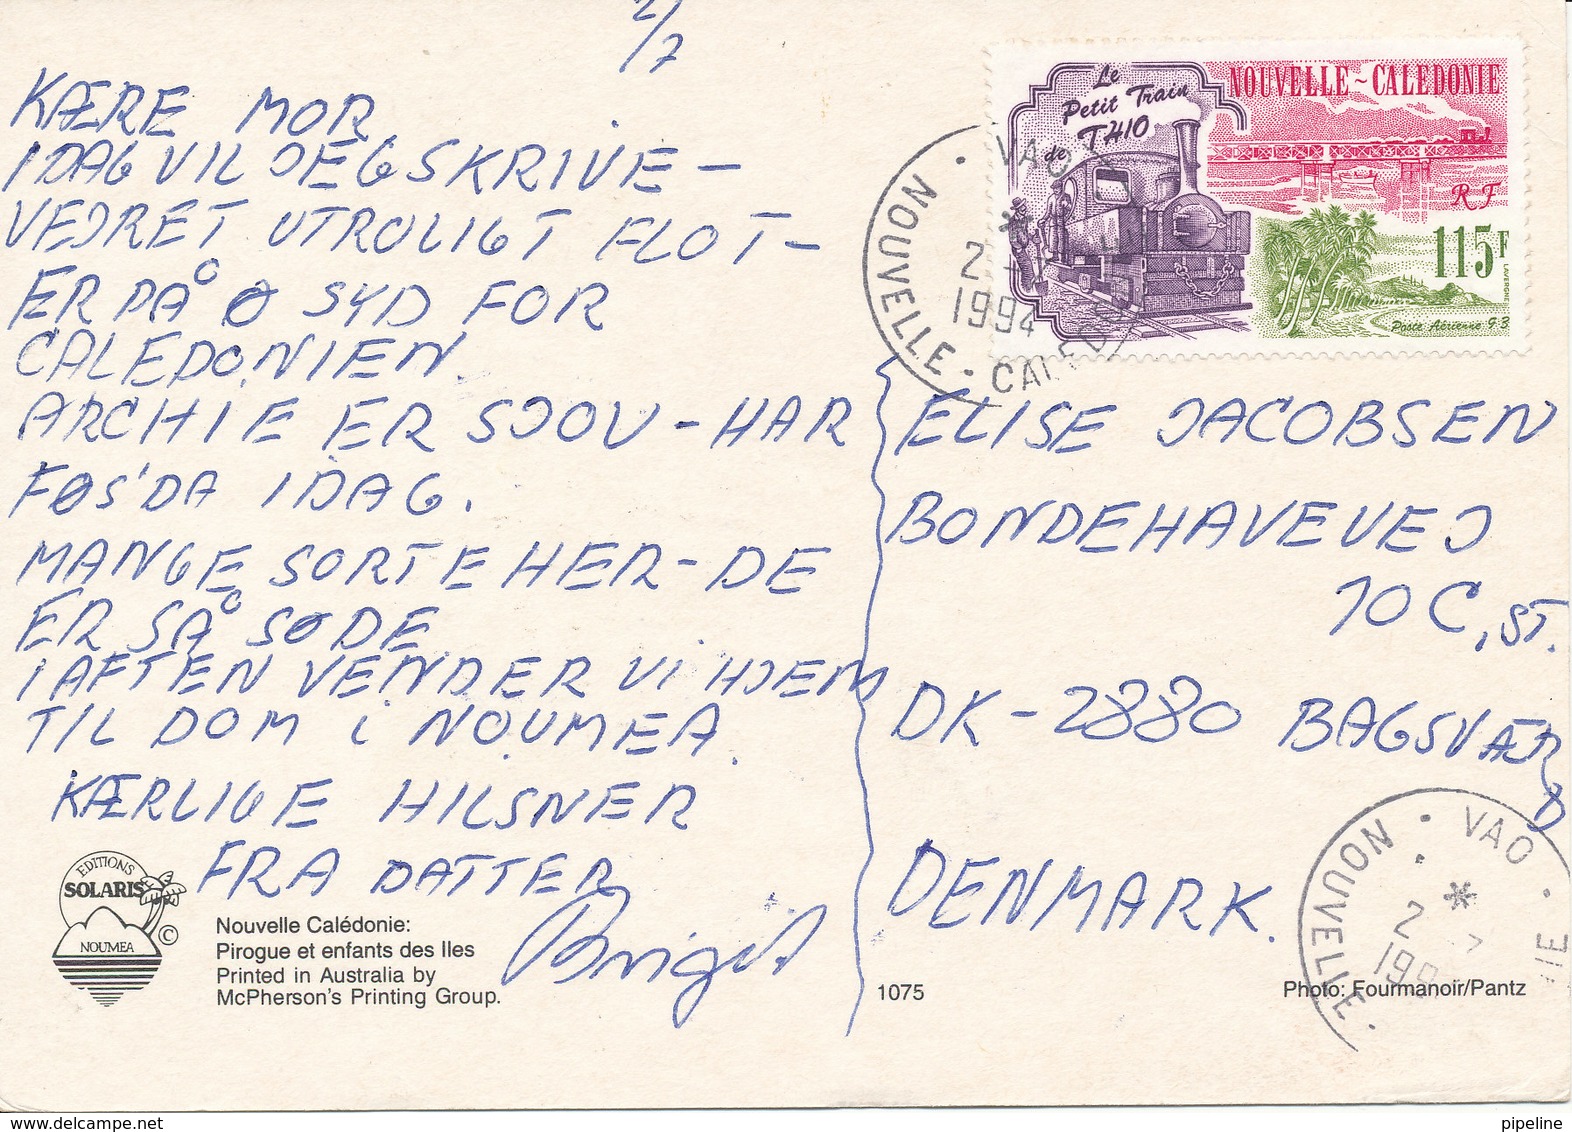 2/7
KÆRE MOR.
I DAG VIL JEG SKRIVE –
VEJRET UTROLIGT FLOT –
ER PÅ Ø SYD FOR
CALEDONIEN.
ARCHIE ER SJOV – HAR
FØS'DA I DAG.
MANGE SORTE HER – DE
ER SÅ SØDE.
I AFTEN VENDER VI HJEM
TIL DOM i NOUMEA.
KÆRLIGE HILSNER
FRA DATTER
Birgit
EDITIONS
SOLARIS
NOUMEA
©
Nouvelle Calédonie:
Pirogue et enfants des Iles
Printed in Australia by
McPherson's Printing Group.
1075
Photo: Fourmanoir/Pantz
Le
Petit Train
de THIO
NOUVELLE~CALEDONIE
RF
115F
LAVERGNE
Poste Aérienne 93
VAO
2
1994
NOUVELLE · CALEDONIE
ELISE JACOBSEN
BONDEHAVEVEJ
10 C, ST.
DK – 2880 BAGSVÆRD
DENMARK.
VAO
2
NOUVELLE
pipeline